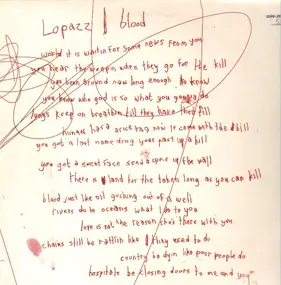 Lopazz | blood
world it is waitin for some news from you
you hear the weapon when they go for the kill
you been around now long enough to know
you know who god is so what you gonna do
lungs keep on breathin till they have their fill
hunger has a price tag now to come with the bill
you got a last name drug your past up a hill
you got a sweet face send a spine up the wall
there is land for the taken long as you can kill
blood just like oil gushing out of a well
rivers do to oceans what I do to you
love is not the reason that's there with you
chains still be rattlin like they used to do
country be dyin like poor people do
hospitals be closing doors to me and you